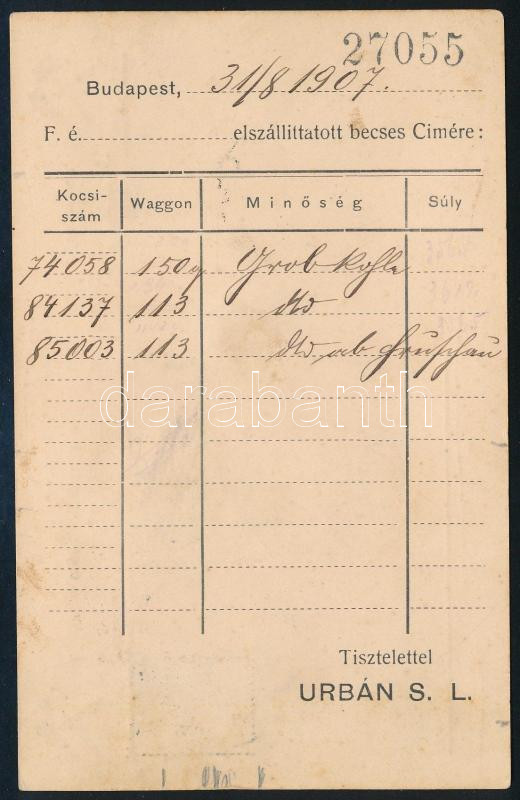 27055
Budapest, 31/8 1907.
F. é. elszállittatott becses Cimére:
Kocsi-szám Waggon Minőség Súly
74.058 150q Grobkohle
84137 113 dto
85003 113 dto ab Hruschau
darabanth
Tisztelettel
URBÁN S. L.